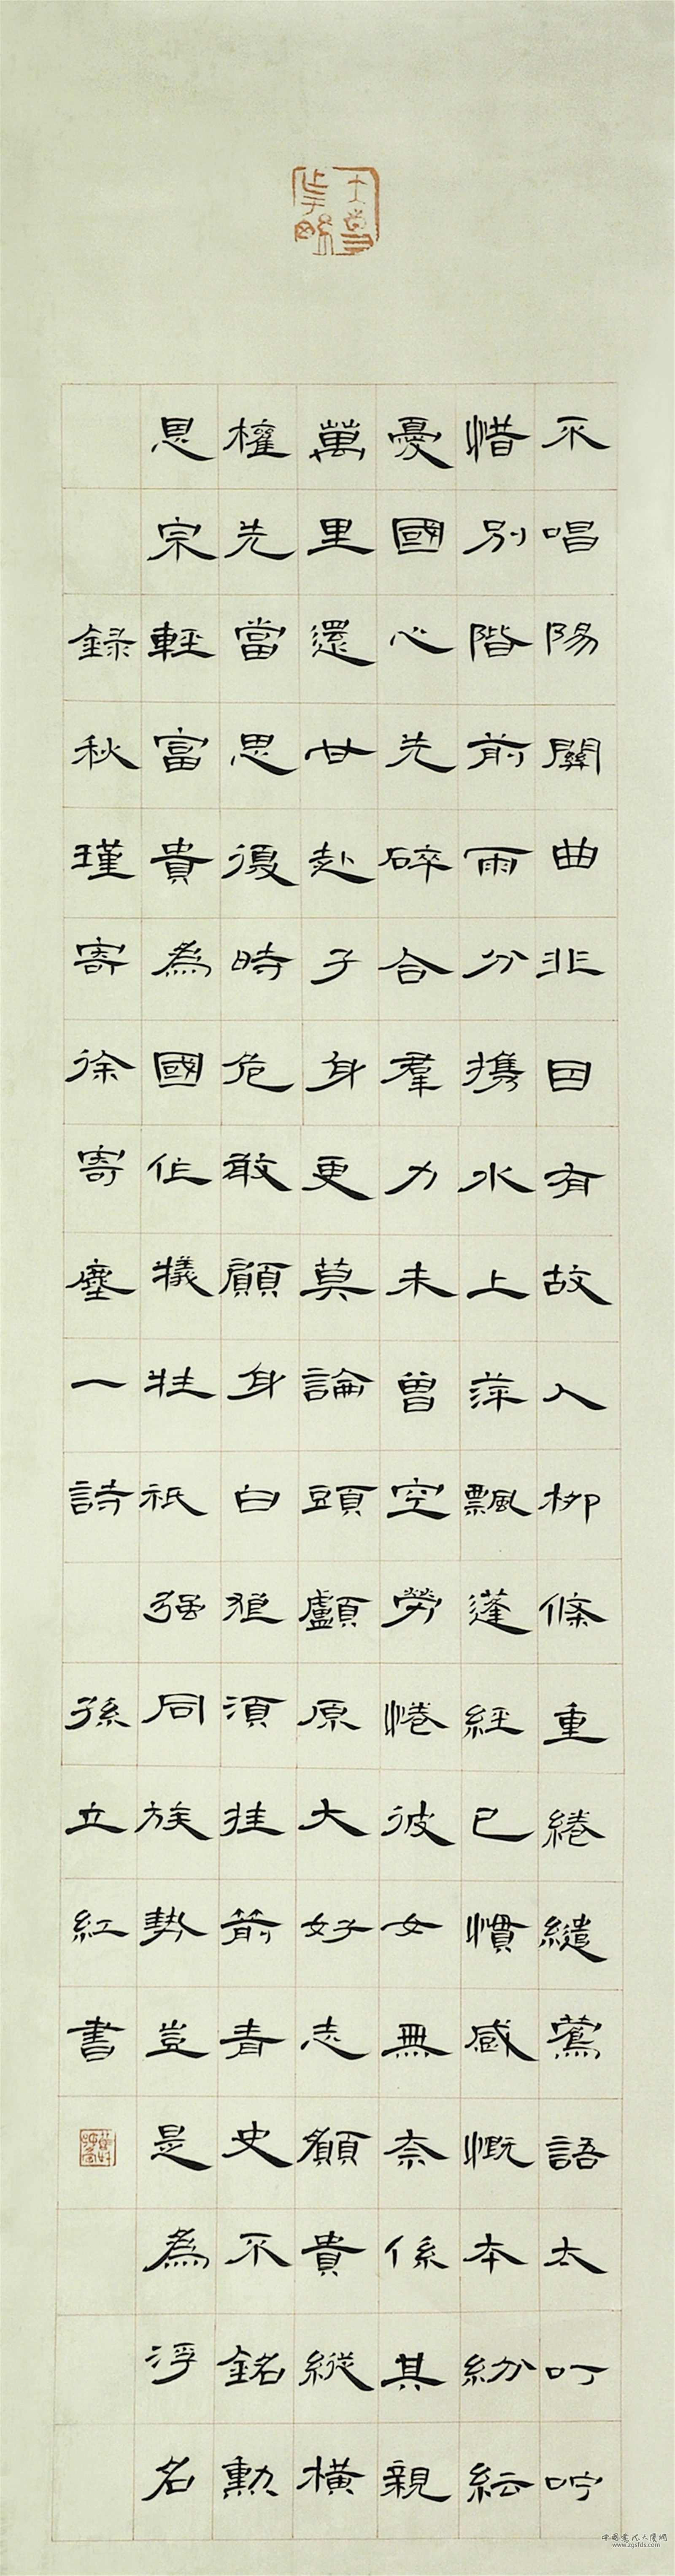 不唱陽關曲非因有故人柳條重綣繾鶯語太叮嚀
惜別階前雨分携水上萍飄蓬經已慣感慨本紛紜
憂國心先碎合羣力未曾空勞惓彼女無奈係其親
萬里還甘赴孑身更莫論頭顱原大好志願貴縱橫
權先當思復時危敢顧身白狼須挂箭青史不銘勳
恩宗輕富貴為國作犧牲祇强同族勢豈是為浮名
録秋瑾寄徐寄塵一詩 孫立紅書
中國書法大厦網
www.zgsfds.com